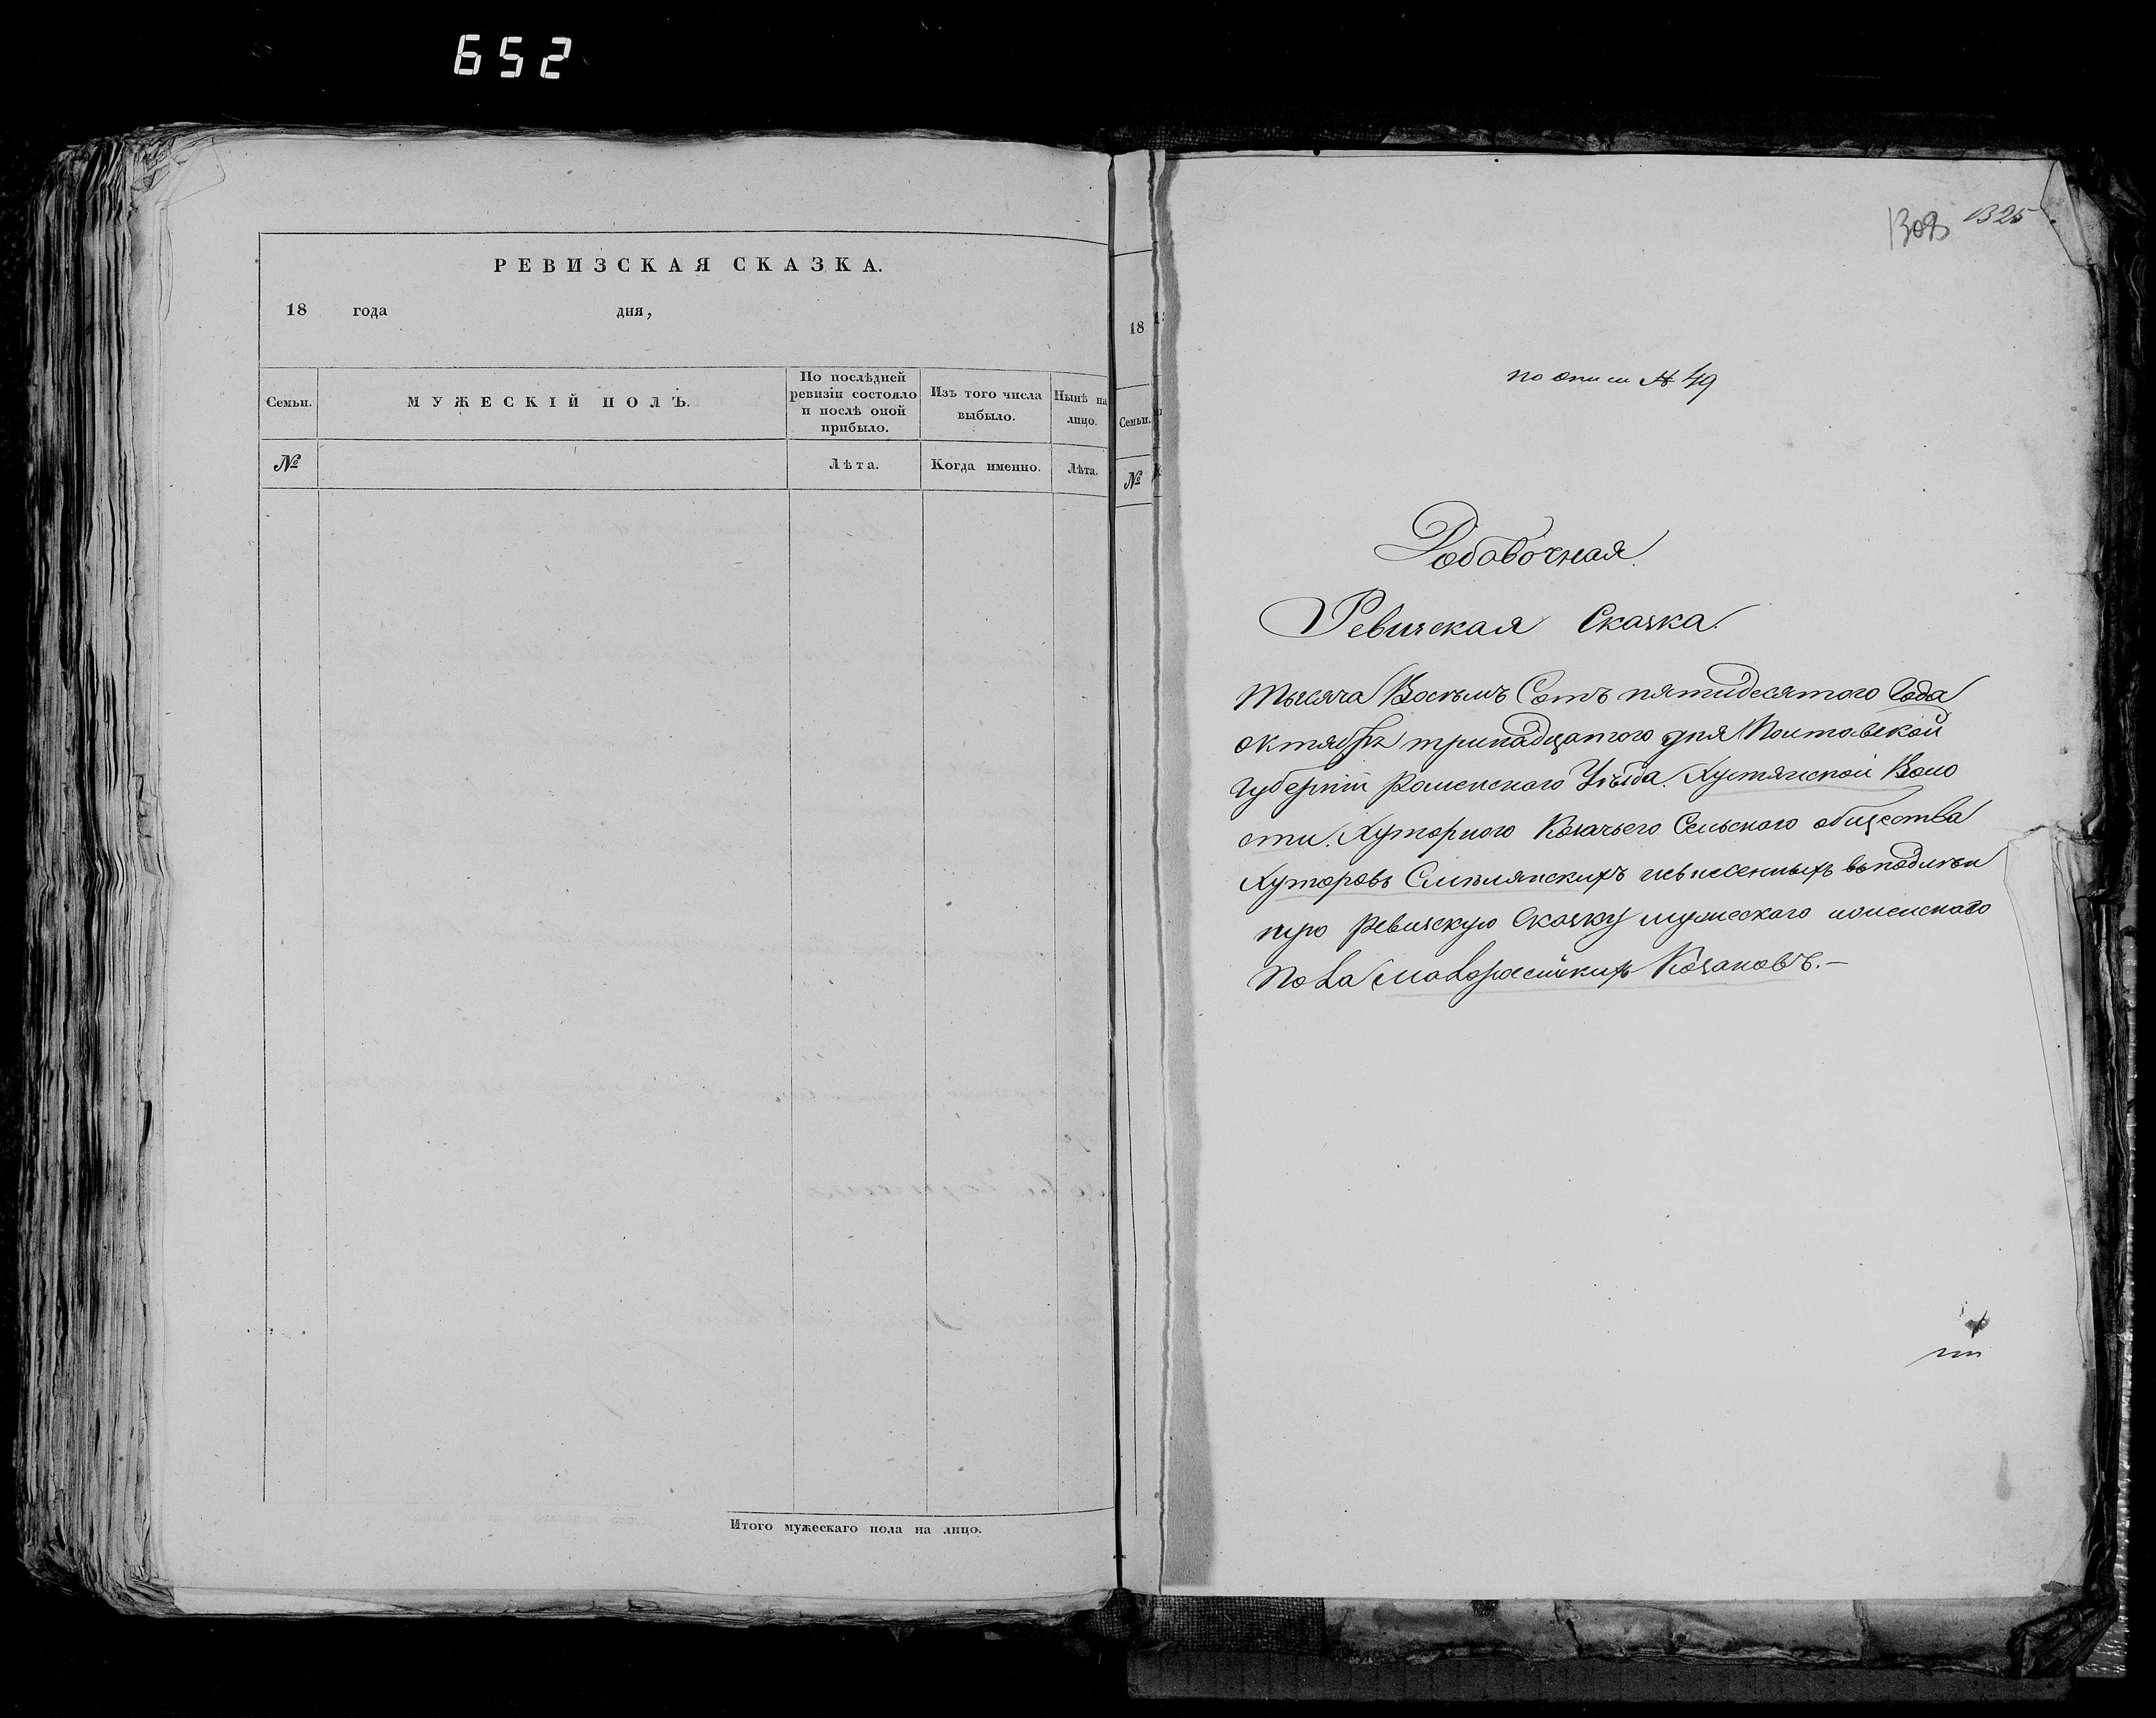 652
РЕВИЗСКАЯ СКАЗКА.
18 года дня,
Семьи.
МУЖЕСКІЙ ПОЛЪ.
По послѣдней
ревизіи состояло
и послѣ оной
прибыло.
Изъ того числа
выбыло.
Нынѣ на
лицо.
№
Лѣта.
Когда именно.
Лѣта.
Итого мужескаго пола на лицо.
18
Семьи.
№
1325
по описи № 49
Добавочная
Ревизская Сказка
Тысяча Восемъ Сотъ пятидесятого Года
октября тринадцатого дня Полтавской
губерніи Роменского Уѣзда. Хустянской Воло
сти. Хуторного Козачьего Сельского общества
Хуторовъ Смѣлянскихъ
ную Ревизскую Сказку мужеского иженскаго
Пола малоросійкихъ Козаковъ.—